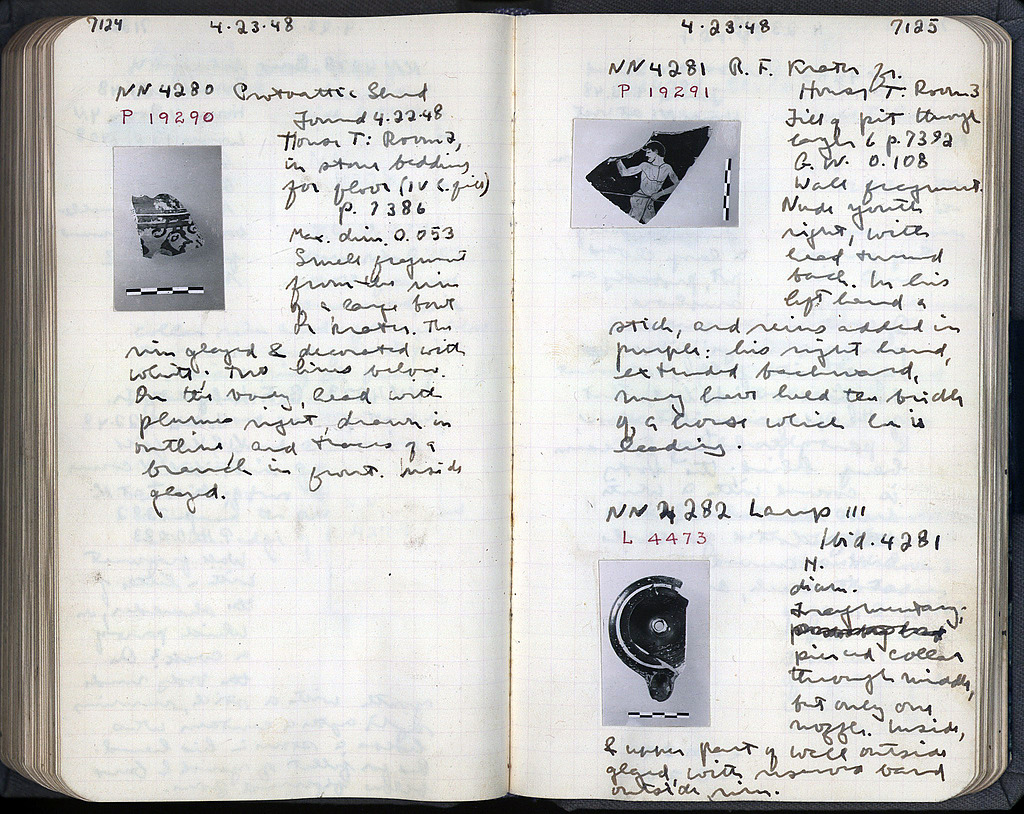 7124
4·23·48
NN 4280 Protoattic Sherd
P 19290
Found 4.22.48
House T: Room 3,
in stone bedding
for floor (IV C. fill)
p. 7386
Max. dim. 0.053
Small fragment
from the rim
of a large bowl
or krater. The
rim glazed & decorated with
white; two lines below.
On the body, head with
plumes right, drawn in
outline and traces of a
branch in front. Inside
glazed.
4·23·48
7125
NN 4281 R. F. Krater fr.
P 19291
House T: Room 3
Fill of pit through
6 p. 7392
0.108
Wall fragment.
Nude youth
right, with
head turned
back. In his
left hand a
stick, and reins added in
purple: his right hand,
extended backward,
may have held the bridle
of a horse which he is
leading.
NN 4282 Lamp III
L 4473
Ibid. 4281
H.
diam.
Fragmentary.
pierced collar
through middle,
but only one
nozzle. Inside,
& upper part of wall outside
glazed, with reserved band
outside rim.